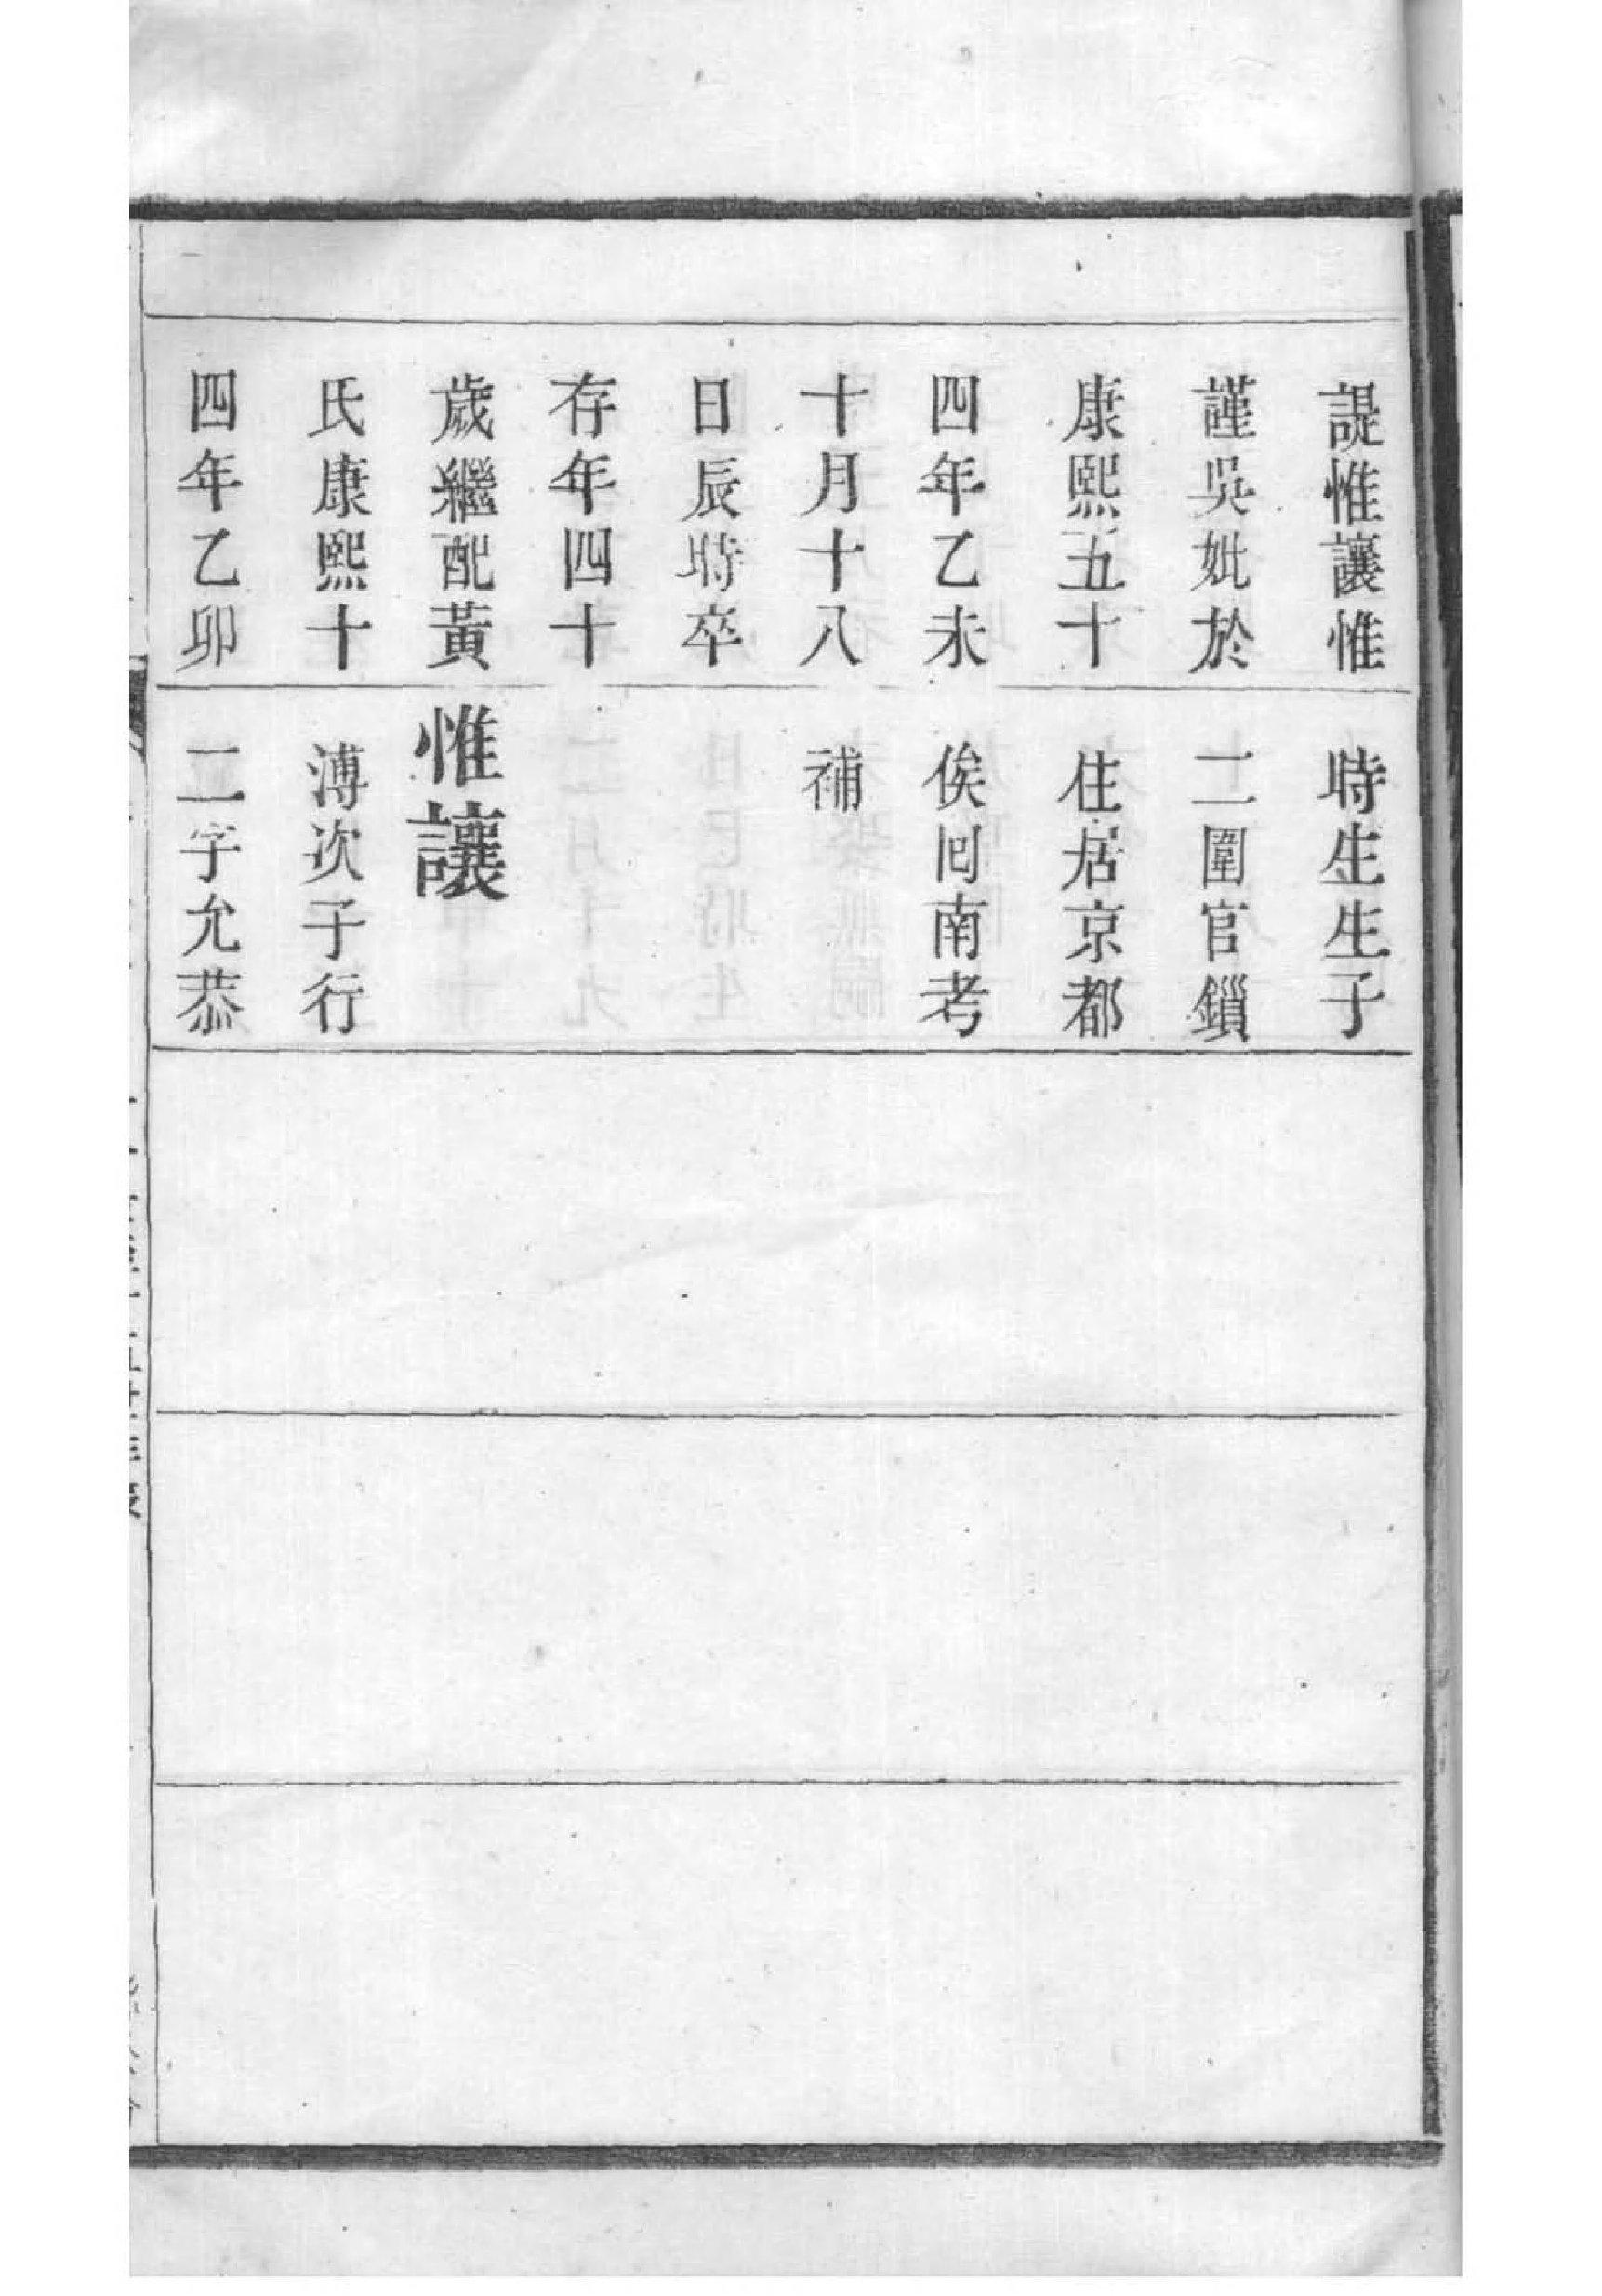 諟惟讓惟
謹吳妣於
康熙五十
四年乙未
十月十八
日辰時卒
存年四十
歲繼配黃
氏康熙十
四年乙卯
時生生子
二圍官鎖
住居京都
俟回南考
補
惟讓
溥次子行
二字允恭